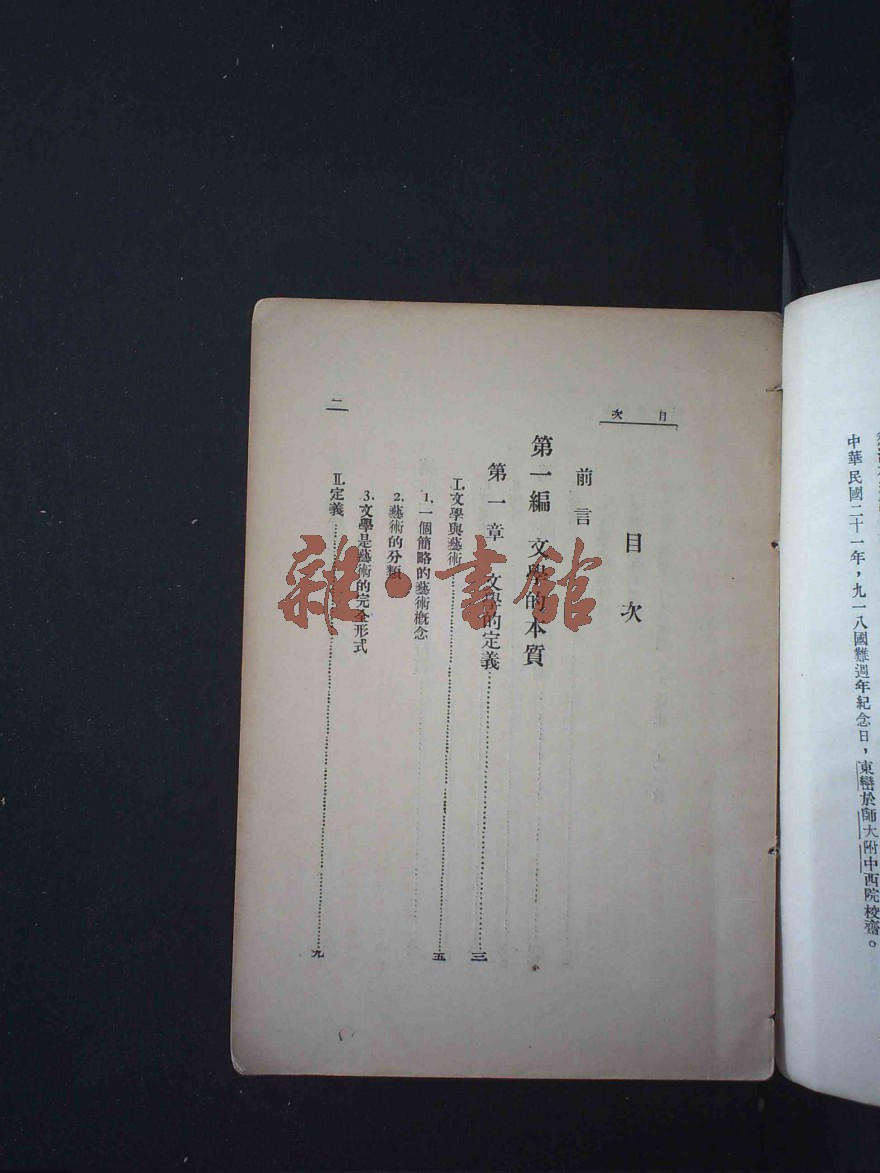 中華民國二十一年，九一八國難週年紀念日，東巒於師大附中西院校齋。
目次
目次
前言
第一編 文學的本質
第一章 文學的定義……三
Ⅰ.文學與藝術……五
1.一個簡略的藝術概念
2.藝術的分類
3.文學是藝術的完全形式
Ⅱ.定義……九
二
雜·書館